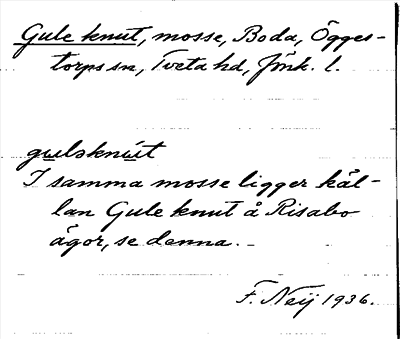 Gule knut, mosse, Boda, Ögges-
torps sn, Tveta hd, Jönk. l.
guləknút
I samma mosse ligger käl-
lan Gule knut å Risabo
ägor, se denna.
F. Neij 1936.